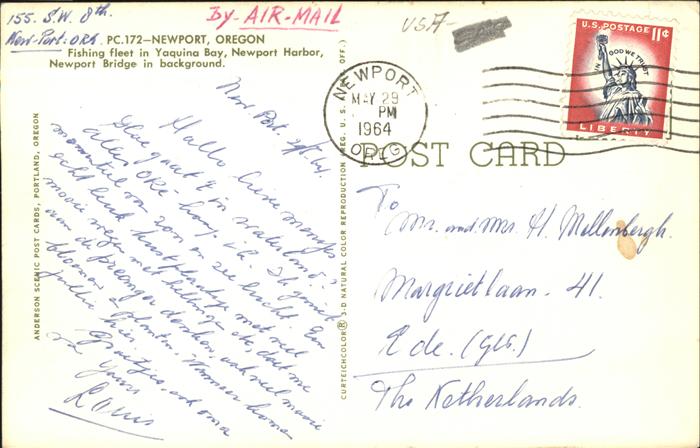 155. S.W. 8th.
New-Port: ORG.
By-AIR-MAIL
USA
PC.172—NEWPORT, OREGON
Fishing fleet in Yaquina Bay, Newport Harbor,
Newport Bridge in background.
U.S. POSTAGE 11¢
IN GOD WE TRUST
LIBERTY
NEWPORT
MAY 29
PM
1964
OREG.
POST CARD
ANDERSON SCENIC POST CARDS, PORTLAND, OREGON
CURTEICHCOLOR® 3-D NATURAL COLOR REPRODUCTION (REG. U.S. PAT. OFF.)
New Port
Hallo lieve mensjes
Hoe gaat 't in waterland?
Alles oké hoop ik. Ik geniet
momenteel van zon en zeelucht. Een
echt leuk kustplaatsje met veel
mooie wegen met hellingen etc, doet me
aan de preanger denken, ook veel mooie
bloemen & planten. Wanneer komen
jullie hier.
Groetjes, ook oma
Yours
Louis
To
Mr. and Mrs H. Mellenbergh.
Margrietlaan. 41.
Ede. (Gld.)
The Netherlands.